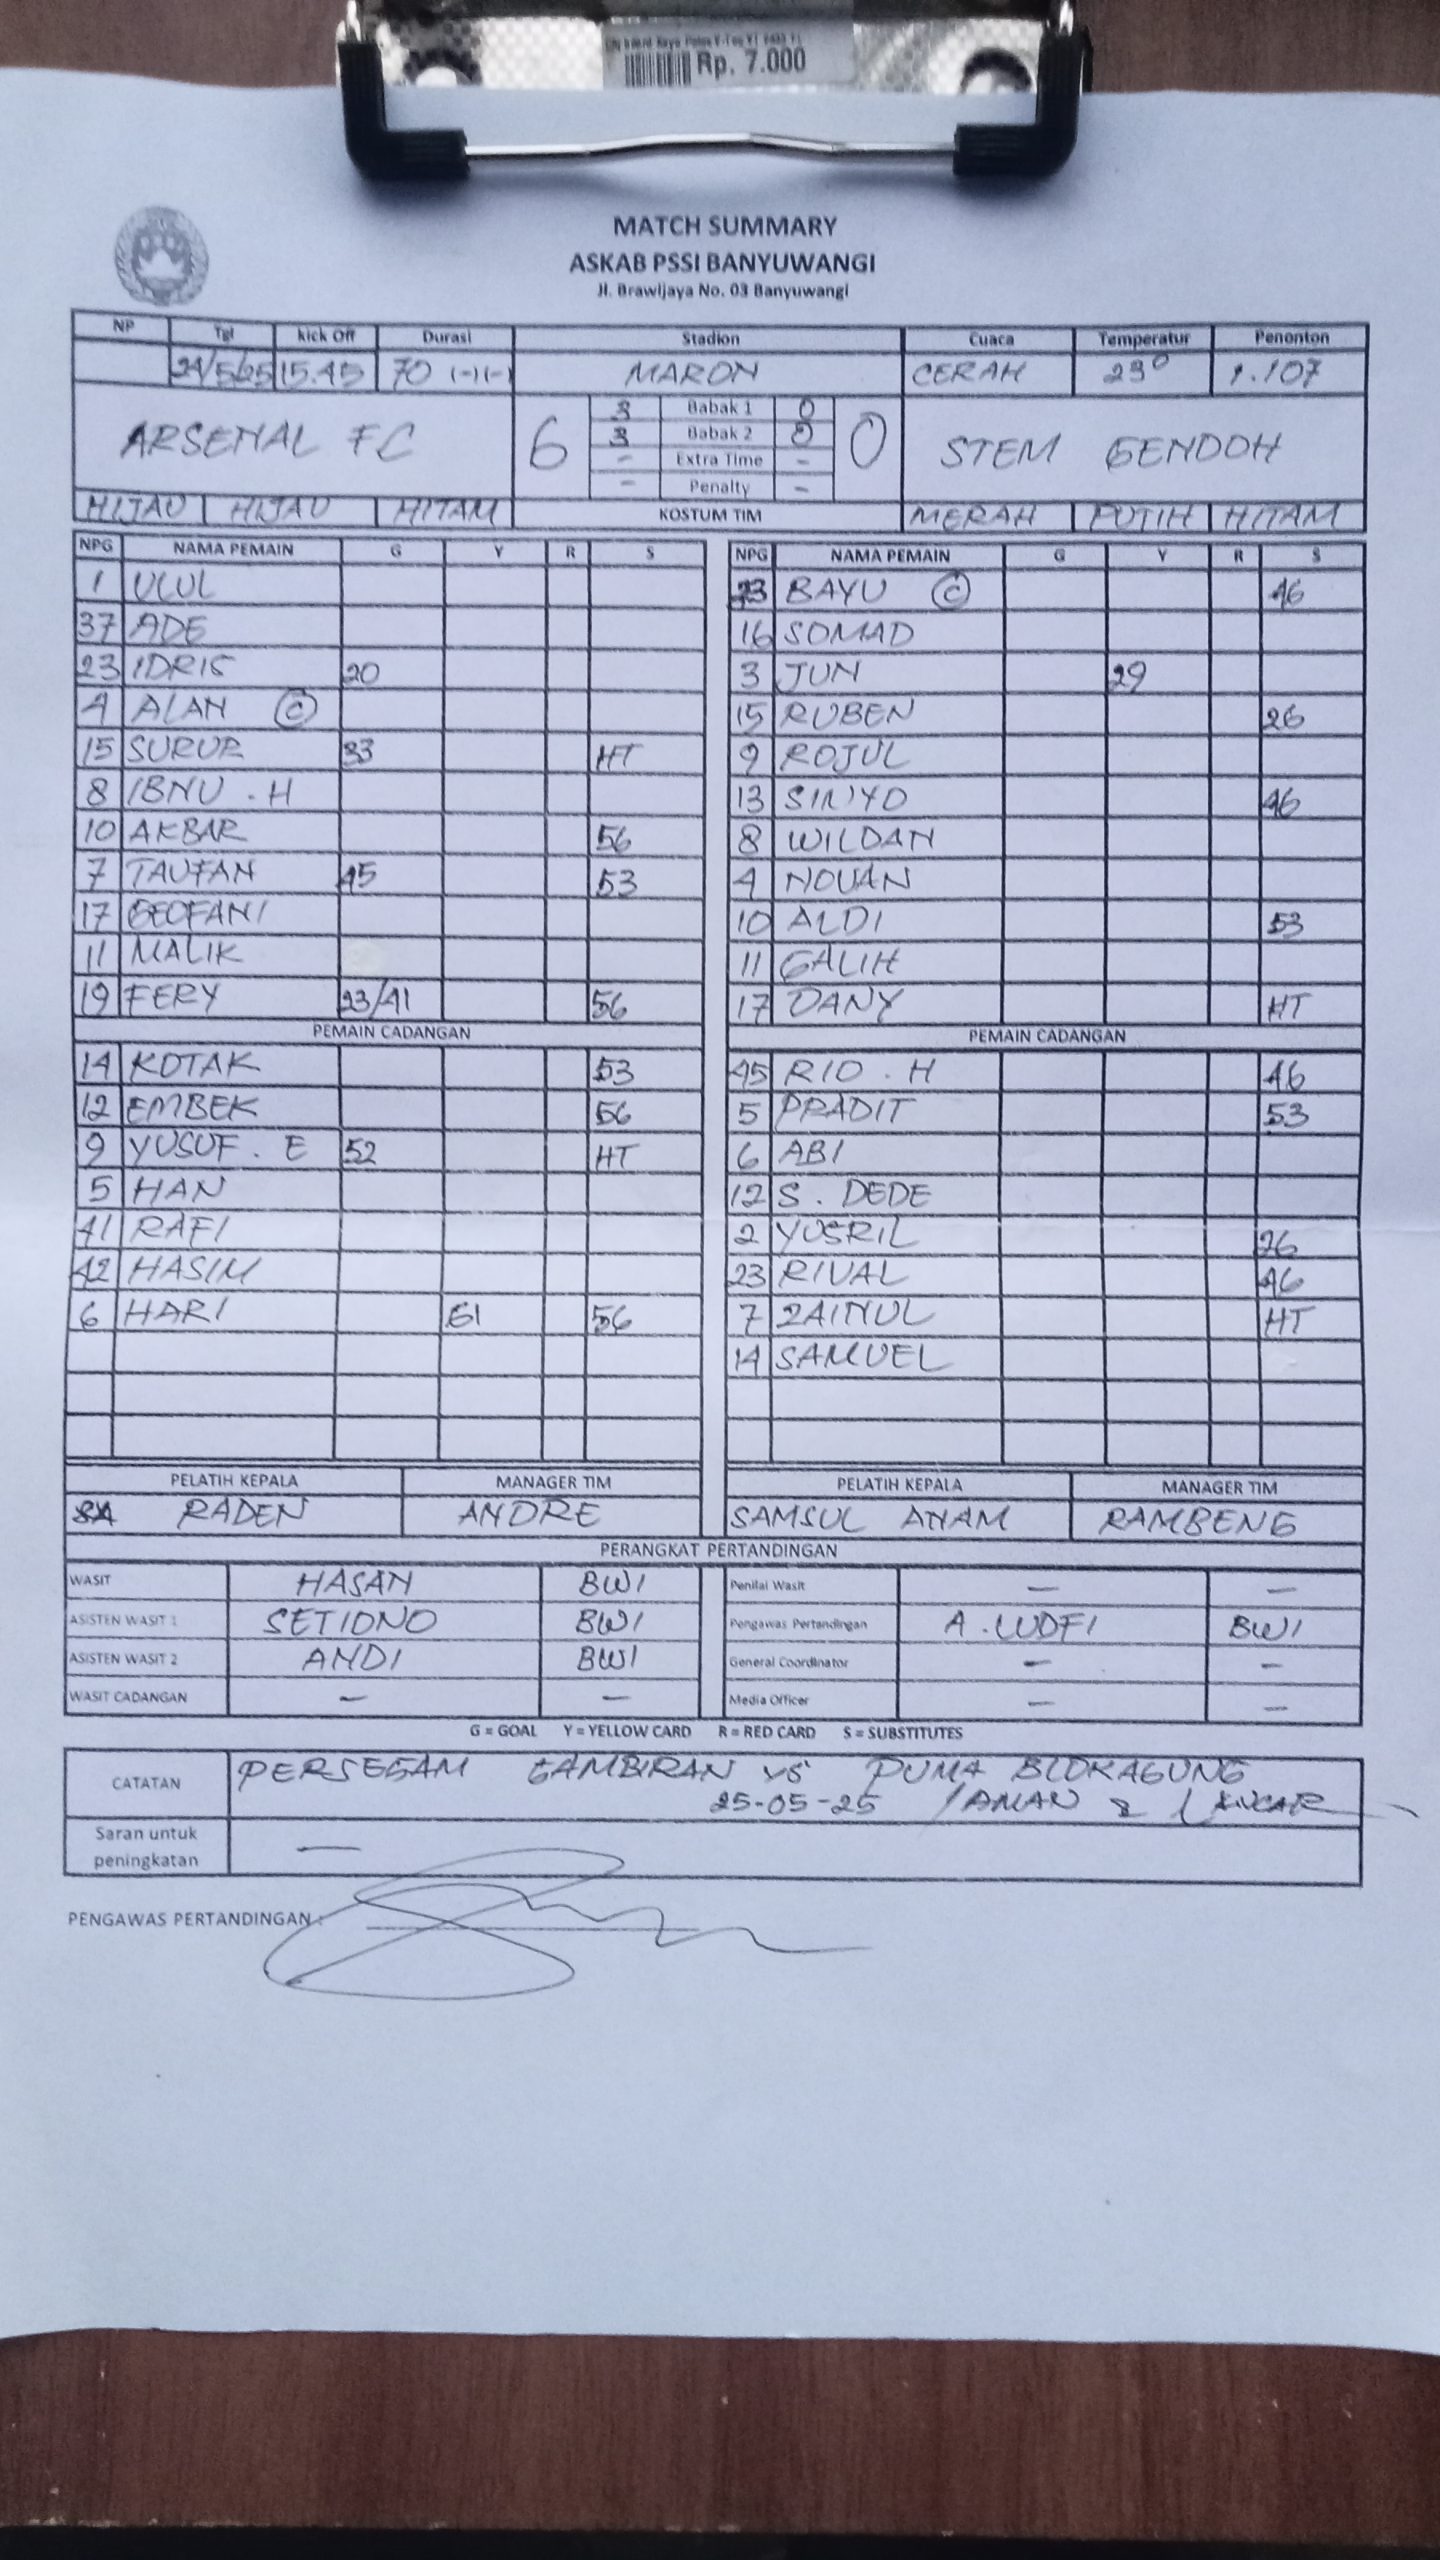 Rp. 7.000
MATCH SUMMARY
ASKAB PSSI BANYUWANGI
Jl. Brawijaya No. 03 Banyuwangi
NP Tgl kick Off Durasi Stadion Cuaca Temperatur Penonton
24/5/25 15.45 70 (-)(-) MARON CERAH 29° 1.107
ARSENAL FC 6 3 Babak 1 0 0 STEM GENDOH
3 Babak 2 0
- Extra Time -
- Penalty -
HIJAU HIJAU HITAM KOSTUM TIM MERAH PUTIH HITAM
NPG NAMA PEMAIN G Y R S NPG NAMA PEMAIN G Y R S
1 ULUL BAYU © 46
37 ADE 16 SOMAD
23 IDRIS 20 3 JUN 29
4 ALAN © 15 RUBEN 26
15 SURUR 33 HT 9 ROJUL
8 IBNU . H 13 SINYO 46
10 AKBAR 56 8 WILDAN
7 TAUFAN 45 53 4 NOVAN
17 GEOFANI 10 ALDI 53
11 MALIK 11 GALIH
19 FERY 23/41 56 17 DANY HT
PEMAIN CADANGAN PEMAIN CADANGAN
14 KOTAK 53 45 RIO . H 46
12 EMBEK 56 5 PRADIT 53
9 YUSUF . E 52 HT 6 ABI
5 HAN 12 S . DEDE
41 RAFI 2 YUSRIL 26
42 HASIM 23 RIVAL 46
6 HARI 61 56 7 ZAINUL HT
14 SAMUEL
PELATIH KEPALA MANAGER TIM PELATIH KEPALA MANAGER TIM
RADEN ANDRE SAMSUL ANAM RAMBENG
PERANGKAT PERTANDINGAN
WASIT HASAN BWI Penilai Wasit - -
ASISTEN WASIT 1 SETIONO BWI Pengawas Pertandingan A . LUDFI BWI
ASISTEN WASIT 2 ANDI BWI General Coordinator - -
WASIT CADANGAN - - Media Officer - -
G = GOAL Y = YELLOW CARD R = RED CARD S = SUBSTITUTES
CATATAN PERSEGAM GAMBIRAN vs PUMA BLOKAGUNG
25-05-25 / AMAN & LANCAR
Saran untuk peningkatan -
PENGAWAS PERTANDINGAN :